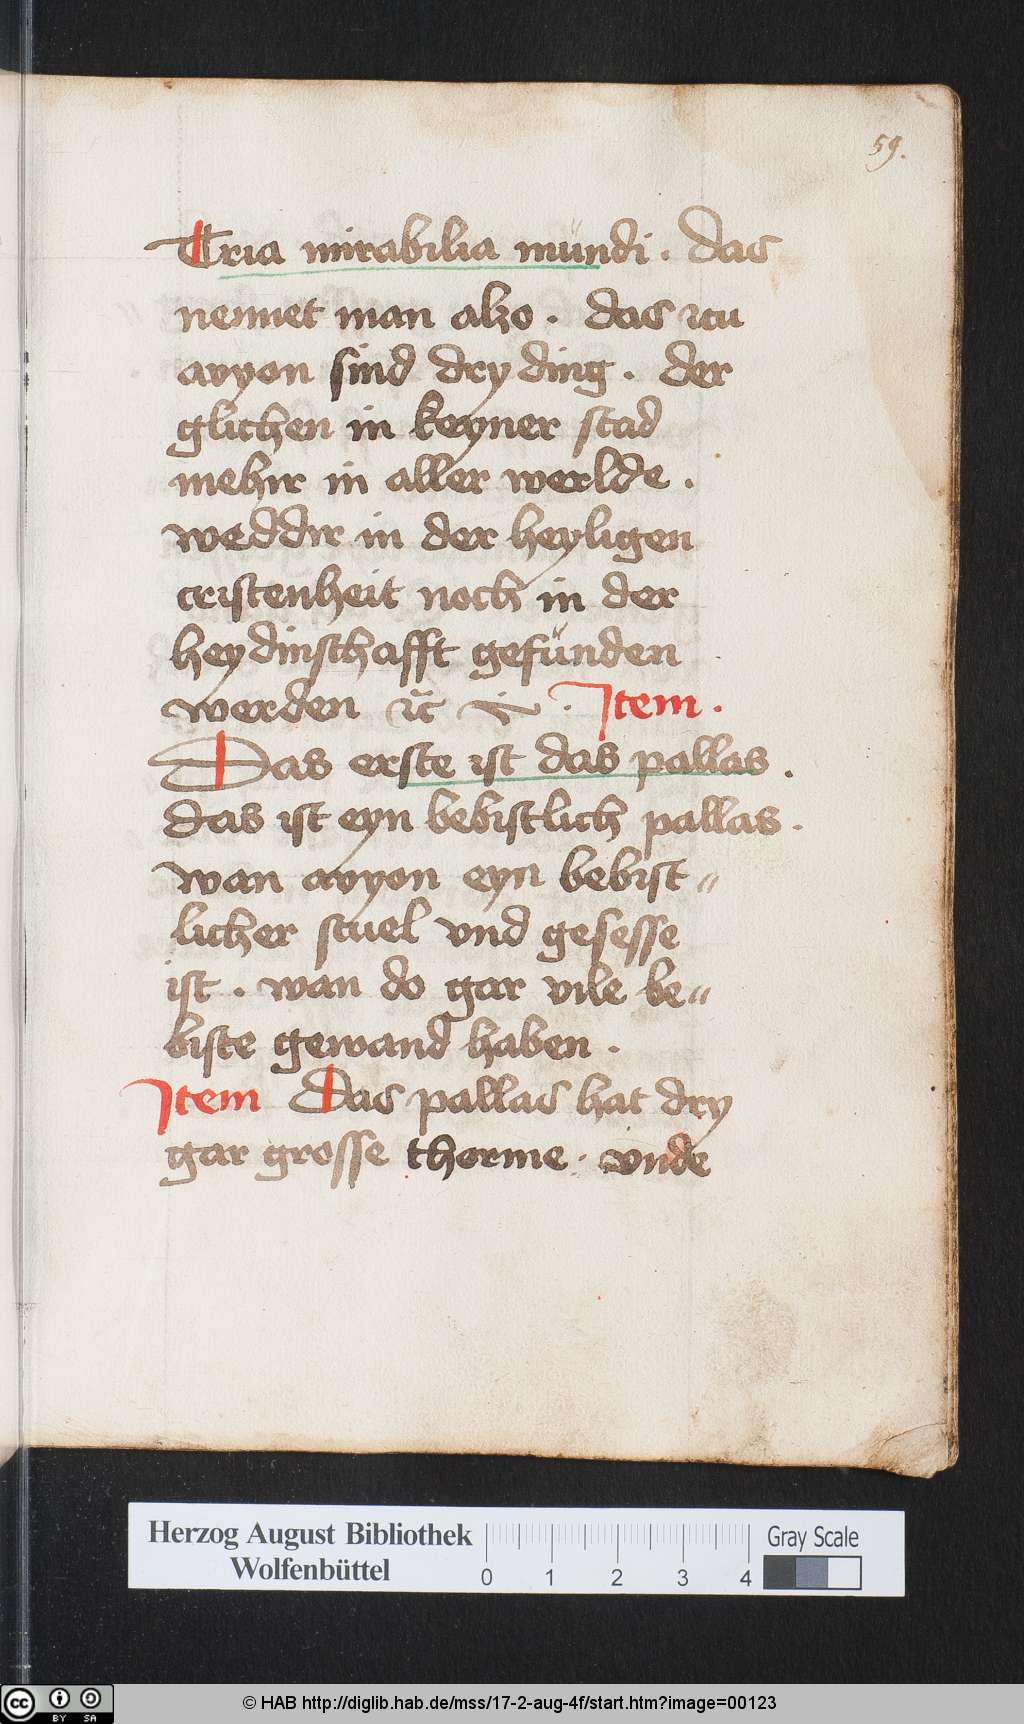 59.
Tria mirabilia mündi. das
nennet man alzo. das czu
avyon sind dry ding. der
glichen in keyner stad
mehir in aller werlde.
weddir in der heyligen
cristenheit noch in der
heydinschafft gefünden
werden Item.
Das erste ist das pallas.
das ist eyn bebistlich pallas.
wan avyon eyn bebist⸗
licher stuel vnd gesesse
ist. wan do gar vile be⸗
biste gewand haben.
Item Das pallas hat dry
gar grosse thorme. vnde
Herzog August Bibliothek
Wolfenbüttel
0 1 2 3 4
Gray Scale
cc BY SA
© HAB http://diglib.hab.de/mss/17-2-aug-4f/start.htm?image=00123